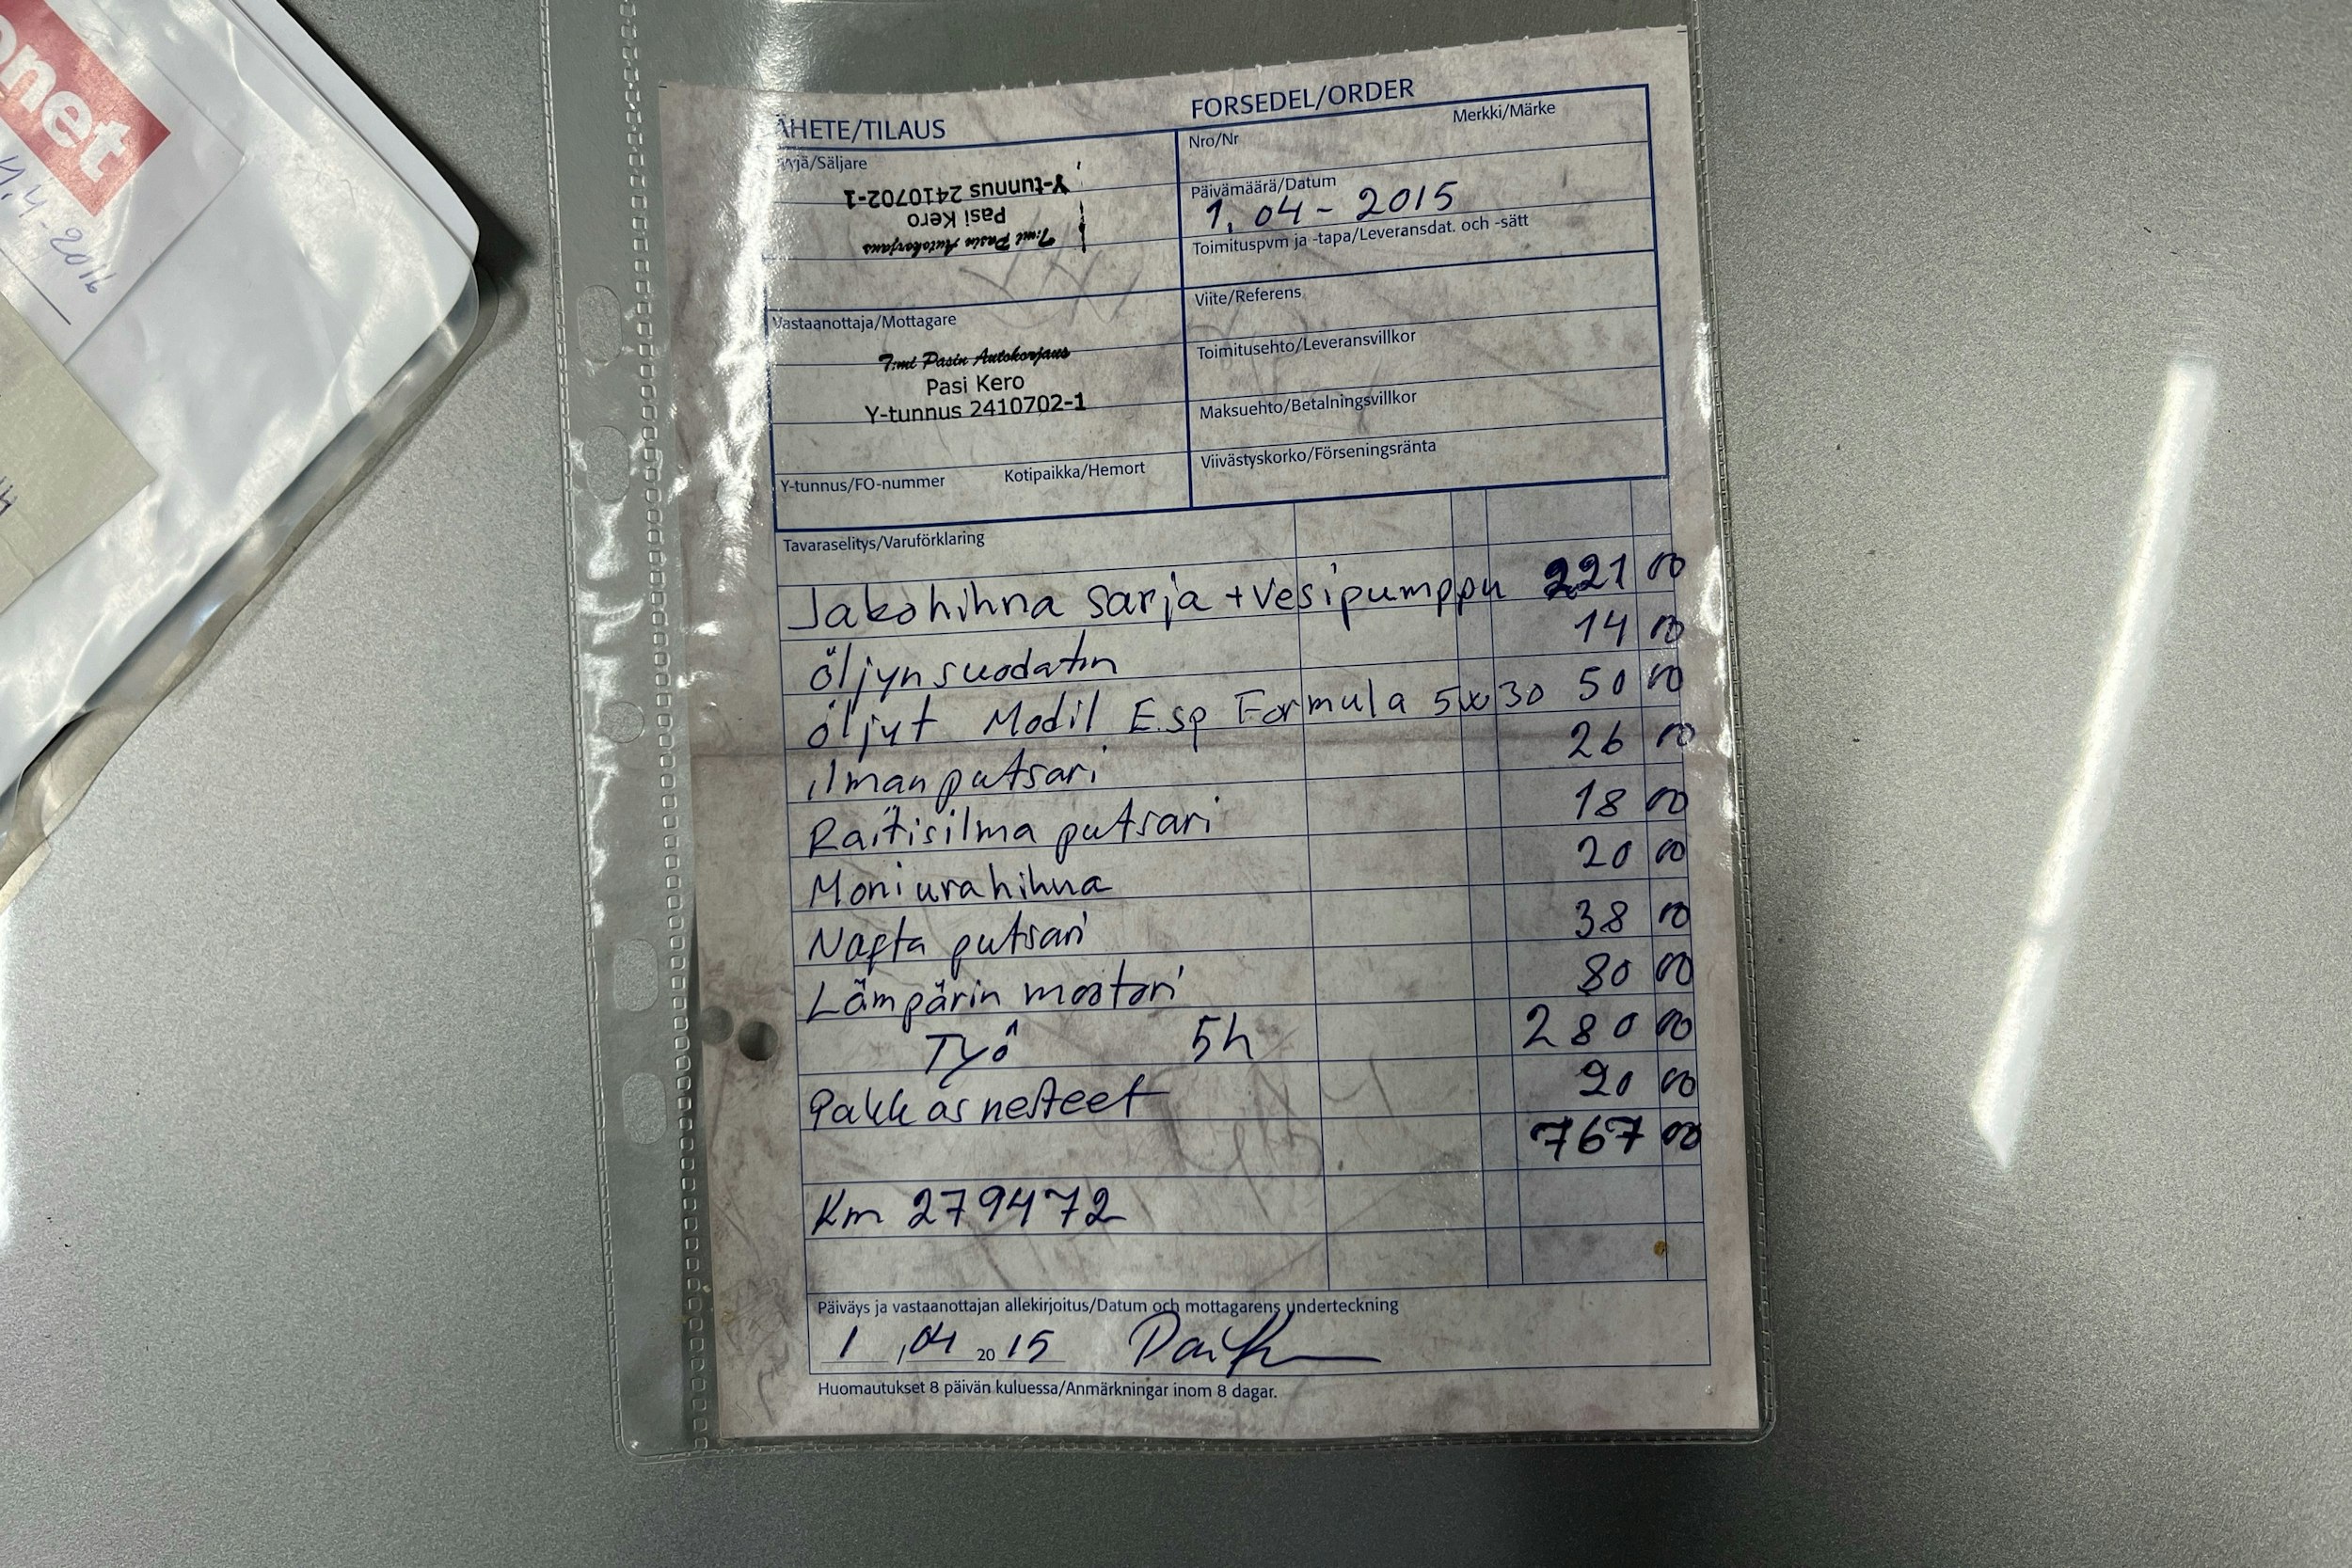 onet
4.4-2016
LÄHETE/TILAUS
FORSEDEL/ORDER
Myyjä/Säljare
Y-tunnus 2410702-1
Pasi Kero
T:mi Pasin Autokorjaus
Nro/Nr
Merkki/Märke
Päivämäärä/Datum
1. 04 - 2015
Toimituspvm ja -tapa/Leveransdat. och -sätt
Vastaanottaja/Mottagare
T:mi Pasin Autokorjaus
Pasi Kero
Y-tunnus 2410702-1
Y-tunnus/FO-nummer Kotipaikka/Hemort
Viite/Referens
Toimitusehto/Leveransvillkor
Maksuehto/Betalningsvillkor
Viivästyskorko/Förseningsränta
Tavaraselitys/Varuförklaring
Jakohihna sarja + Vesipumppu 221 00
öljynsuodatin 14 00
öljyt Modil E.sp Formula 5w30 50 00
ilmanputsari 26 00
Raitisilma putsari 18 00
Moniurahihna 20 00
Nafta putsari 38 00
Lämpärin moottori 80 00
Työ 5h 280 00
Pakkasnesteet 20 00
767 00
Km 279472
Päiväys ja vastaanottajan allekirjoitus/Datum och mottagarens underteckning
1 , 04 20 15
Huomautukset 8 päivän kuluessa/Anmärkningar inom 8 dagar.